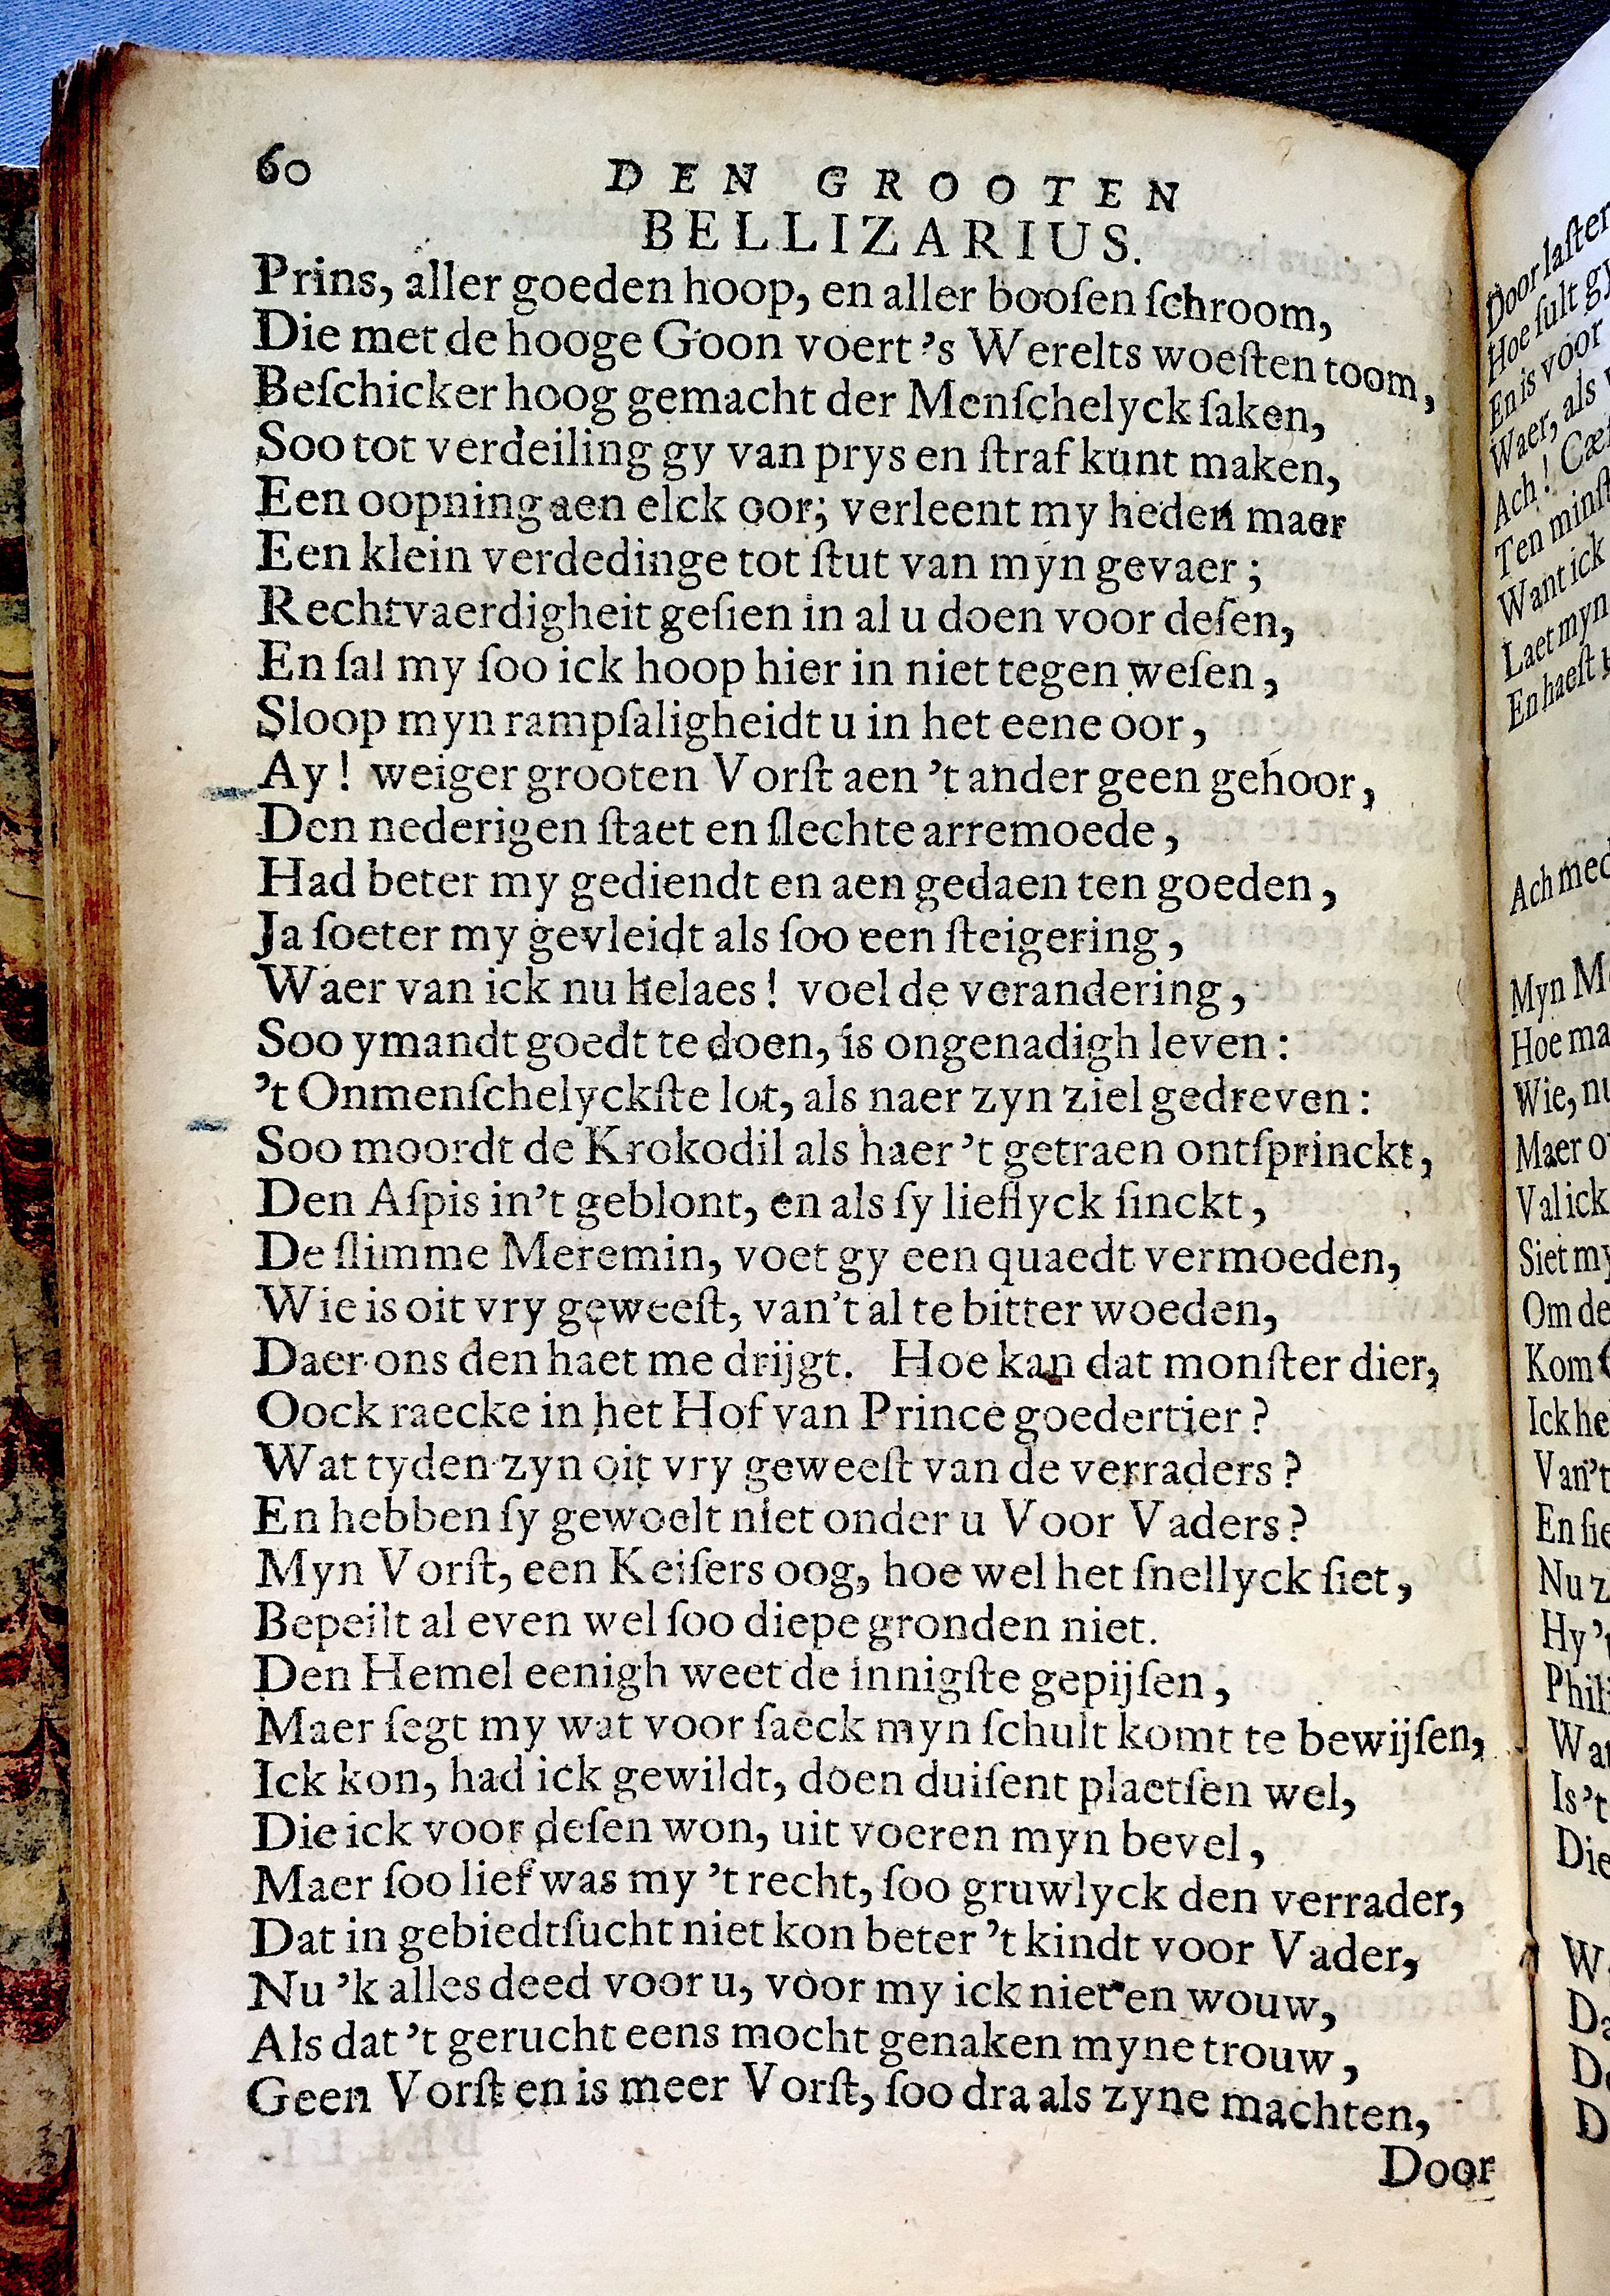 60 DEN GROOTEN
BELLIZARIUS.
Prins, aller goeden hoop, en aller booſen ſchroom,
Die met de hooge Goon voert 's Werelts woeſten toom,
Beſchicker hoog gemacht der Menſchelyck ſaken,
Soo tot verdeiling gy van prys en ſtraf kunt maken,
Een oopning aen elck oor; verleent my heden maer
Een klein verdedinge tot ſtut van myn gevaer;
Rechtvaerdigheit geſien in al u doen voor deſen,
En ſal my ſoo ick hoop hier in niet tegen weſen,
Sloop myn rampſaligheidt u in het eene oor,
Ay! weiger grooten Vorſt aen 't ander geen gehoor,
Den nederigen ſtaet en ſlechte arremoede,
Had beter my gediendt en aen gedaen ten goeden,
Ja ſoeter my gevleidt als ſoo een ſteigering,
Waer van ick nu helaes! voel de verandering,
Soo ymandt goedt te doen, is ongenadigh leven:
't Onmenſchelyckſte lot, als naer zyn ziel gedreven:
Soo moordt de Krokodil als haer 't getraen ontſprinckt,
Den Aſpis in't geblont, en als ſy lieflyck ſinckt,
De ſlimme Meremin, voet gy een quaedt vermoeden,
Wie is oit vry geweeſt, van't al te bitter woeden,
Daer ons den haet me drijgt. Hoe kan dat monſter dier,
Oock raecke in het Hof van Prince goedertier?
Wat tyden zyn oit vry geweeſt van de verraders?
En hebben ſy gewoelt niet onder u Voor Vaders?
Myn Vorſt, een Keiſers oog, hoe wel het ſnellyck ſiet,
Bepeilt al even wel ſoo diepe gronden niet.
Den Hemel eenigh weet de innigſte gepijſen,
Maer ſegt my wat voor ſaeck myn ſchult komt te bewijſen,
Ick kon, had ick gewildt, doen duiſent plaetſen wel,
Die ick voor deſen won, uit voeren myn bevel,
Maer ſoo lief was my 't recht, ſoo gruwlyck den verrader,
Dat in gebiedtſucht niet kon beter 't kindt voor Vader,
Nu 'k alles deed voor u, voor my ick niet en wouw,
Als dat 't gerucht eens mocht genaken myne trouw,
Geen Vorſt en is meer Vorſt, ſoo dra als zyne machten,
Door
Door laſter
Hoe ſult gy
En is voor
Waer, als
Ach!
Ten
Want ick
Laet myn
En haeſt
Ach
Myn
Hoe
Wie,
Maer
Val ick
Siet
Om de
Kom
Ick
Van't
En
Nu
Hy
Is 't
Die